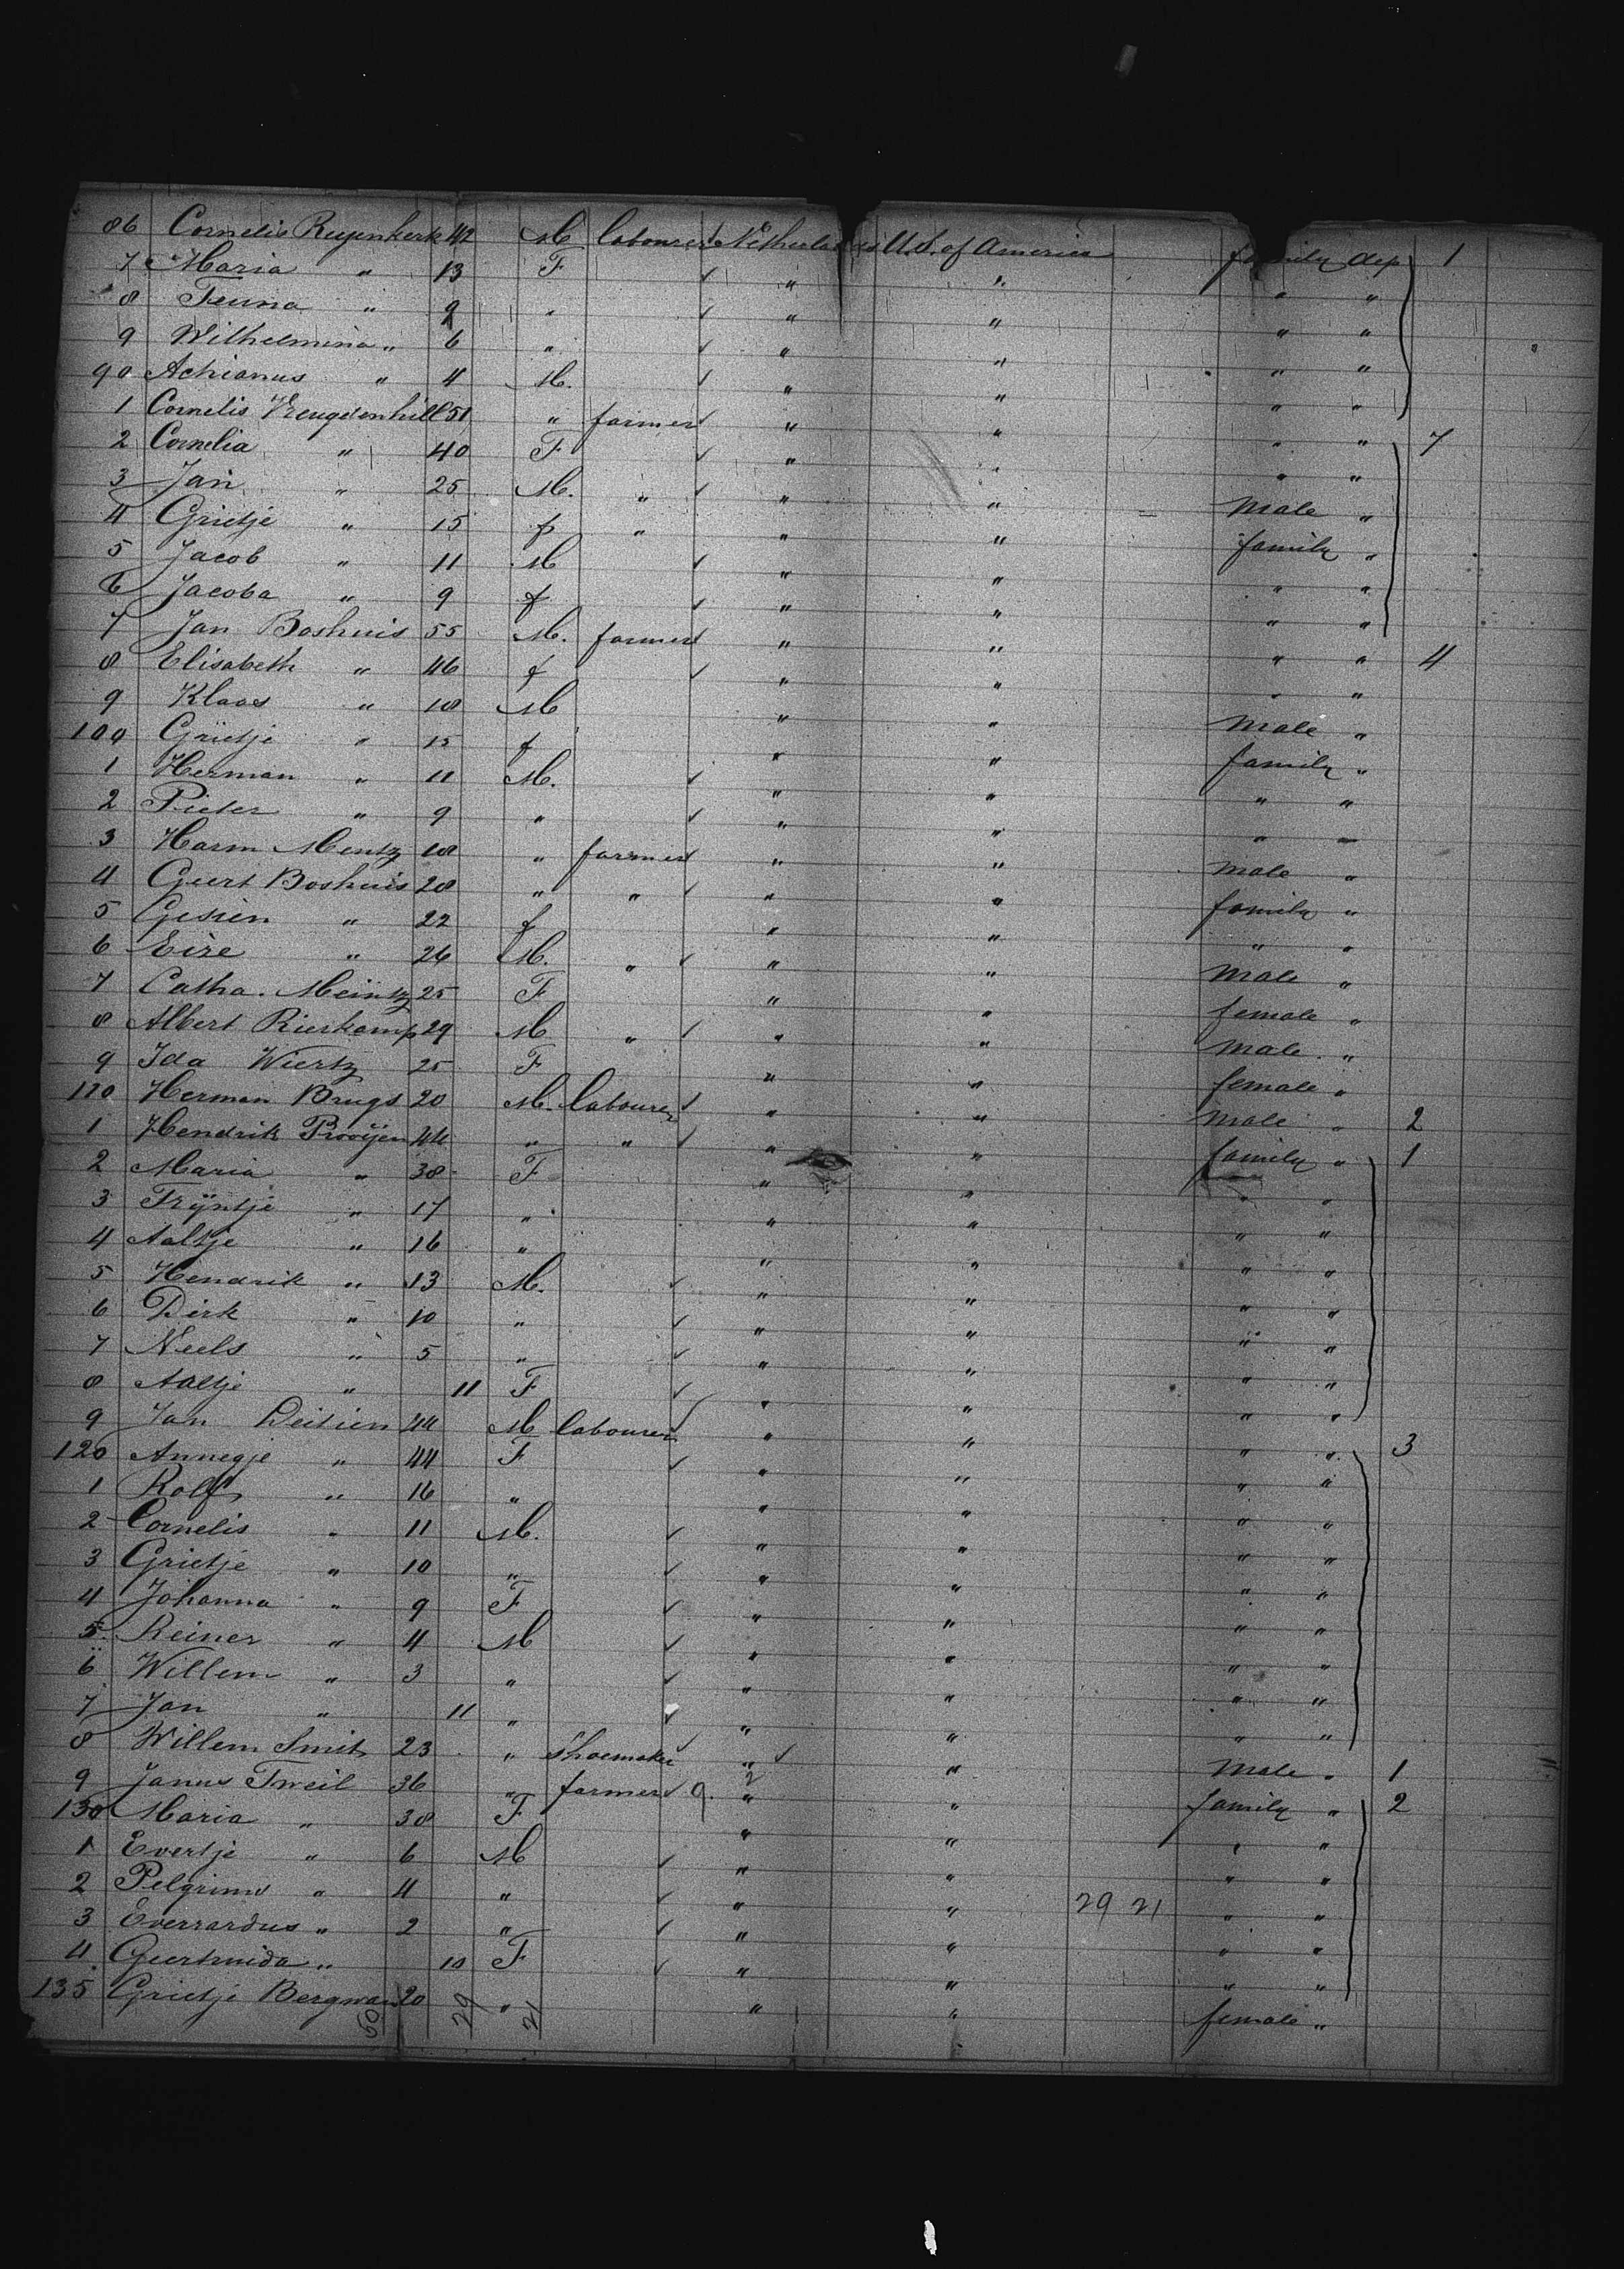 86 Cornelis Ruyenkerk 42 M labourer Netherlands U.S. of America family dep 1
7 Maria " 13 F " " " "
8 Teuna " 9 " " " " "
9 Wilhelmina " 6 " " " " "
90 Adrianus " 4 M. " " " "
1 Cornelis Vreugdenhill 51 " farmer " " " " 7
2 Cornelia " 40 F " " " "
3 Jan " 25 M. " " " Male "
4 Grietje " 15 f " " " family "
5 Jacob " 11 M " " " "
6 Jacoba " 9 f " " " "
7 Jan Boshuis 55 M. farmer " " " " 4
8 Elisabeth " 46 f " " " "
9 Klaas " 18 M " " Male "
100 Grietje " 15 f " " family "
1 Herman " 11 M. " " " "
2 Pieter " 9 " " " " "
3 Harm Mentz 18 " farmer " " Male "
4 Geert Boshuis 28 " " " " family "
5 Gesien " 22 f " " " "
6 " 26 M. " " " Male "
7 Catha. Meintz 25 F " " female "
8 Albert Rierkamp 29 M " " " Male "
9 Ida Wiertz 25 F " " female "
110 Herman Brugs 20 M. labourer " " Male " 2
1 Hendrik Prooijen 44 " " " " family " 1
2 Maria " 38 F " " " "
3 Trijntje " 17 " " " " "
4 Aaltje " 16 " " " " "
5 Hendrik " 13 M. " " " "
6 Dirk " 10 " " " " "
7 Neels " 5 " " " " "
8 Aaltje " 11 F " " " "
9 Jan Deitien 44 M labourer " " " " 3
120 Annegje " 44 F " " " "
1 Rolf " 16 " " " " "
2 Cornelis " 11 M. " " " "
3 Grietje " 10 " " " " "
4 Johanna " 9 F " " " "
5 Reiner " 4 M " " " "
6 Willem " 3 " " " " "
7 Jan " 11 " " " " "
8 Willem Smit 23 " shoemaker " " Male " 1
9 Janus Tweil 36 " farmer 9. 2 " " family " 2
130 Maria " 38 F " " " "
1 Evertje " 6 M " " " "
2 Pelgrims " 4 " " " 29 21 " "
3 Everrardus " 2 " " " " "
4 Geertruida " 10 F " " " "
135 Grietje Bergman 20 " " " female "
60 29 21